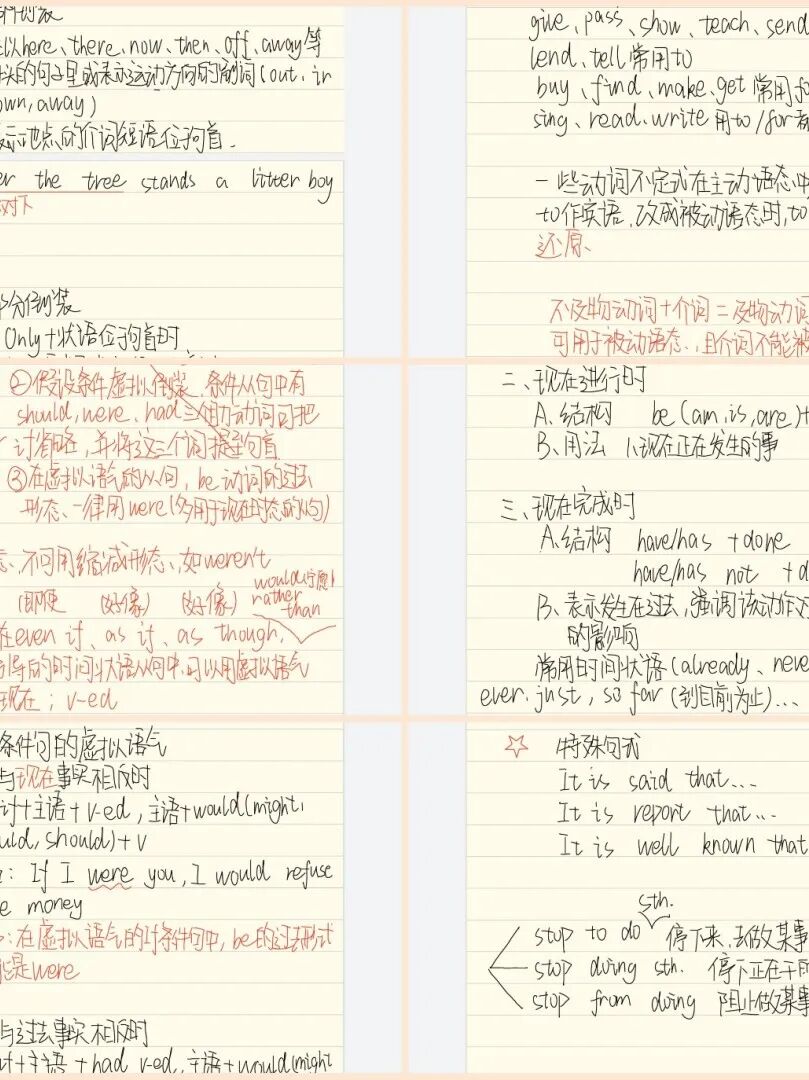 以here、there、now、then、off、away等
头的句子里或表示运动方向的副词(out、in
own,away)
表示地点的介词短语位于句首.
er the tree stands a litter boy
部分倒装
Only+状语位于句首时
②假设条件虚拟倒装,条件从句中有
should,were、had三个助动词可把
if省略,并将这三个词提到句首
③在虚拟语气的从句,be动词的过去
形态、一律用were(多用于现在时态的从句)
不可用缩减形态、如weren't
(即使 (好像) (好像) would(宁愿)
rather
than
在even if、as if、as though,
引导的时间状语从句中,可以用虚拟语气
现在;v-ed
条件句的虚拟语气
与现在事实相反时
if+主语+v-ed,主语+would(might,
uld,should)+v
: If I were you,I would refuse
e money
:在虚拟语气的if条件句中,be的过去形式
是were
与过去事实相反时
if+主语+had v-ed,主语+would(might
give、pass、show、teach、send
lend、tell常用to
buy、find、make、get常用fo
sing、read、write用to/for
一些动词不定式在主动语态中
to作宾语,改成被动语态时,to
还原、
不及物动词+介词=及物动词
可用于被动语态、,且介词不能被
二、现在进行时
A.结构 be(am,is,are)+
B.用法 1.现在正在发生的事
三、现在完成时
A.结构 have/has +done
have/has not +d
B.表示发生在过去,强调该动作对
的影响
常用时间状语(already、neve
ever.just,so far(到目前为止)...
☆ 特殊句式
It is said that...
It is report that...
It is well known that
sth.
stop to do 停下来,去做某事
stop doing sth. 停下正在干的
stop from doing 阻止做某事